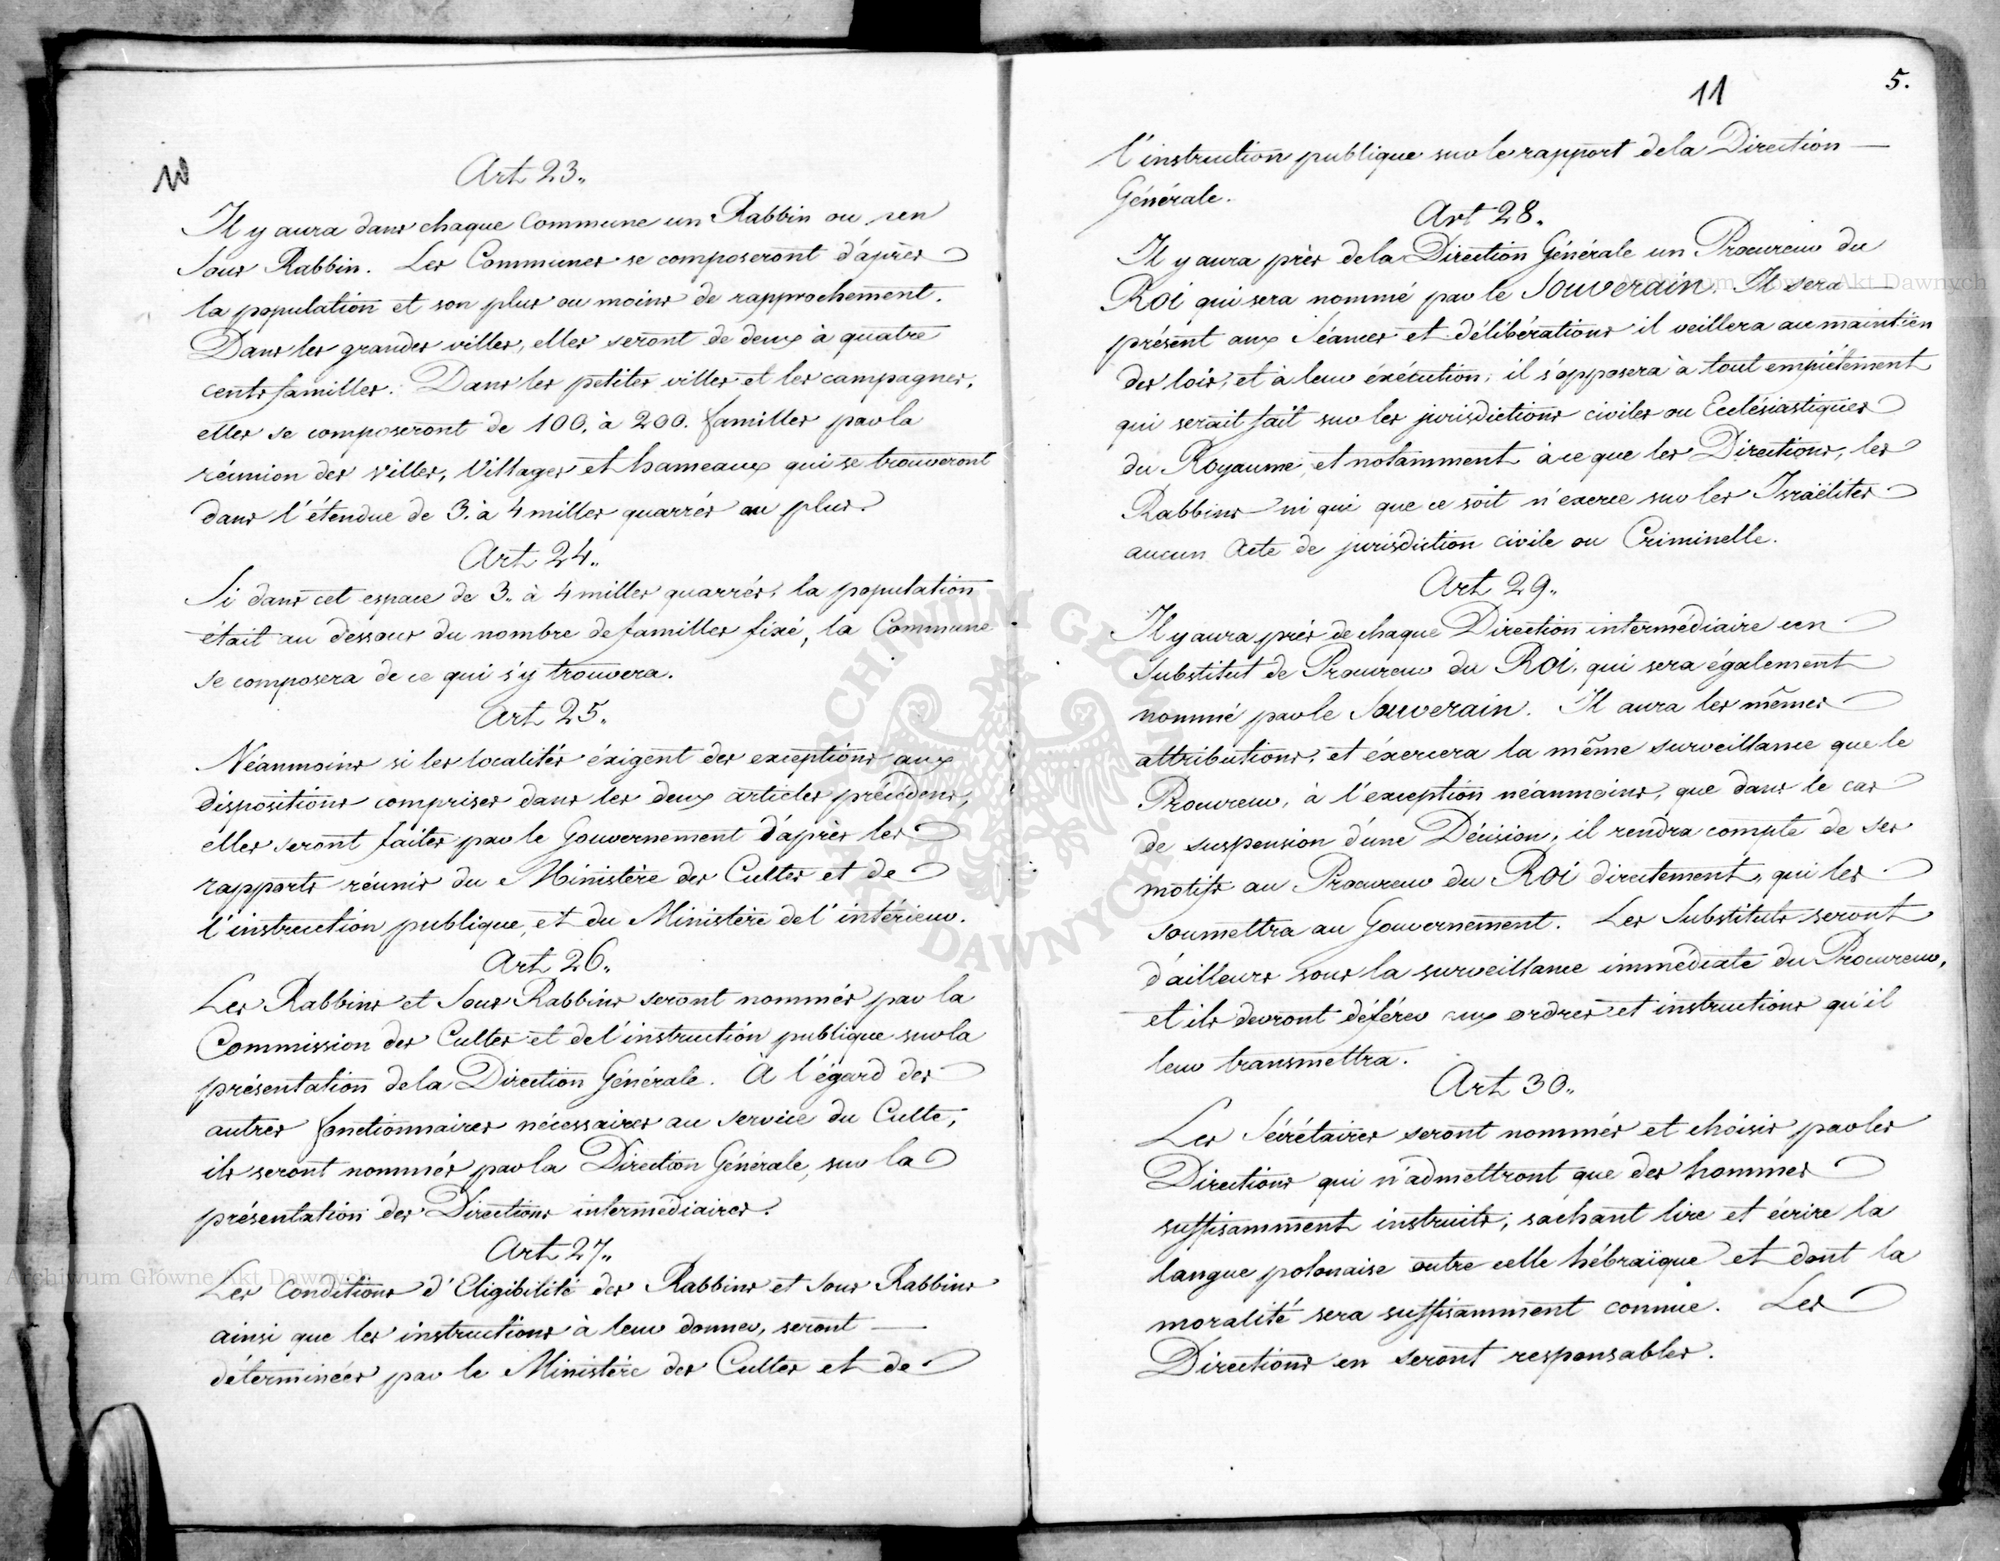 10
Art 23.
Il y aura dans chaque Commune un Rabbin ou un
Sous Rabbin. Les Communes se composeront d'après
la population et son plus ou moins de rapprochement.
Dans les grandes villes, elles seront de deux à quatre
cents familles. Dans les petites villes et les campagnes,
elles se composeront de 100. à 200. familles par la
réunion des villes, Villages et hameaux qui se trouveront
dans l'étendue de 3. à 4 milles quarrés au plus.
Art 24.
Si dans cet espace de 3. à 4 milles quarrés, la population
était au dessous du nombre de familles fixé, la Commune
se composera de ce qui s'y trouvera.
Art 25.
Néanmoins si les localités éxigent des exceptions aux
dispositions comprises dans les deux articles précédens,
elles seront faites par le Gouvernement d'après les
rapports réunis du Ministère des Cultes et de
l'instruction publique, et du Ministère de l'intérieur.
Art 26.
Les Rabbins et Sous Rabbins seront nommés par la
Commission des Cultes et de l'instruction publique sur la
présentation de la Direction Générale. A l'égard des
autres fonctionnaires nécessaires au service du Culte,
ils seront nommés par la Direction Générale, sur la
présentation des Directions intermédiaires.
Art 27.
Les Conditions d'Eligibilité des Rabbins et Sous Rabbins
ainsi que les instructions à leur donner, seront —
déterminées par le Ministère des Cultes et de
11
5.
l'instruction publique sur le rapport de la Direction —
Générale.
Art 28.
Il y aura près de la Direction Générale un Procureur du
Roi qui sera nommé par le Souverain. Il sera —
présent aux Séances et délibérations il veillera au maintien
des loix, et à leur éxécution; il s'opposera à tout empiétement
qui serait fait sur les jurisdictions civiles ou Ecclésiastiques
du Royaume, et notamment à ce que les Directions, les
Rabbins ni qui que ce soit n'exerce sur les Israëlites
aucun Acte de jurisdiction civile ou Criminelle.
Art 29.
Il y aura près de chaque Direction intermédiaire un
Substitut de Procureur du Roi, qui sera également
nommé par le Souverain. Il aura les mêmes
attributions, et éxercera la même surveillance que le
Procureur, à l'exception néanmoins, que dans le cas
de suspension d'une Décision, il rendra compte de ses
motifs au Procureur du Roi directement, qui les
soumettra au Gouvernement. Les Substituts seront
d'ailleurs sous la surveillance immédiate du Procureur,
et ils devront déférer aux ordres et instructions qu'il
leur transmettra.
Art 30.
Les Sécrétaires seront nommés et choisis par les
Directions qui n'admettront que des hommes
suffisamment instruits, sachant lire et écrire la
langue polonaise outre celle hébraïque et dont la
moralité sera suffisamment connue. Les
Directions en seront responsables.
Archiwum Główne Akt Dawnych
Archiwum Główne Akt Dawnych
ARCHIWUM GŁÓWNE AKT DAWNYCH